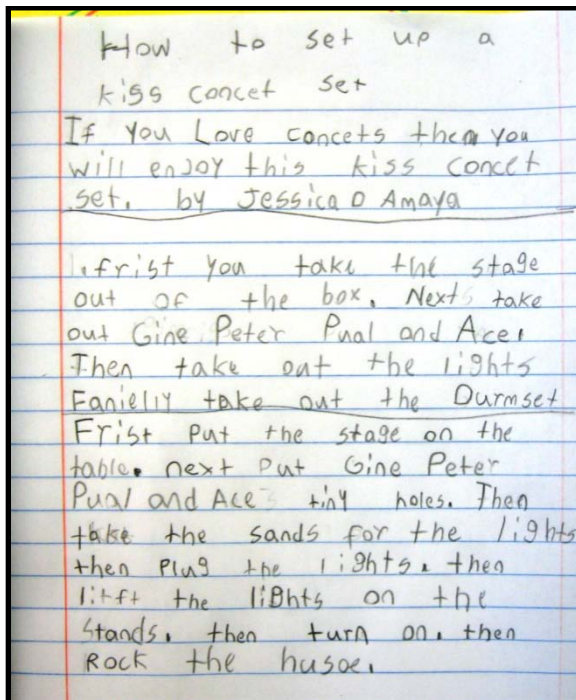 How to set up a
kiss concet set
If you Love concets then you
will enjoy this kiss concet
set. by Jessica D Amaya
1. frist you take the stage
out of the box. Next take
out Gine Peter Pual and Ace.
Then take out the lights
Fanielly take out the Durmset
Frist put the stage on the
table. next put Gine Peter
Pual and Ace tiny holes. Then
take the sands for the lights
then plug the lights. then
litft the lights on the
stands. then turn on. then
ROCK the husoe.